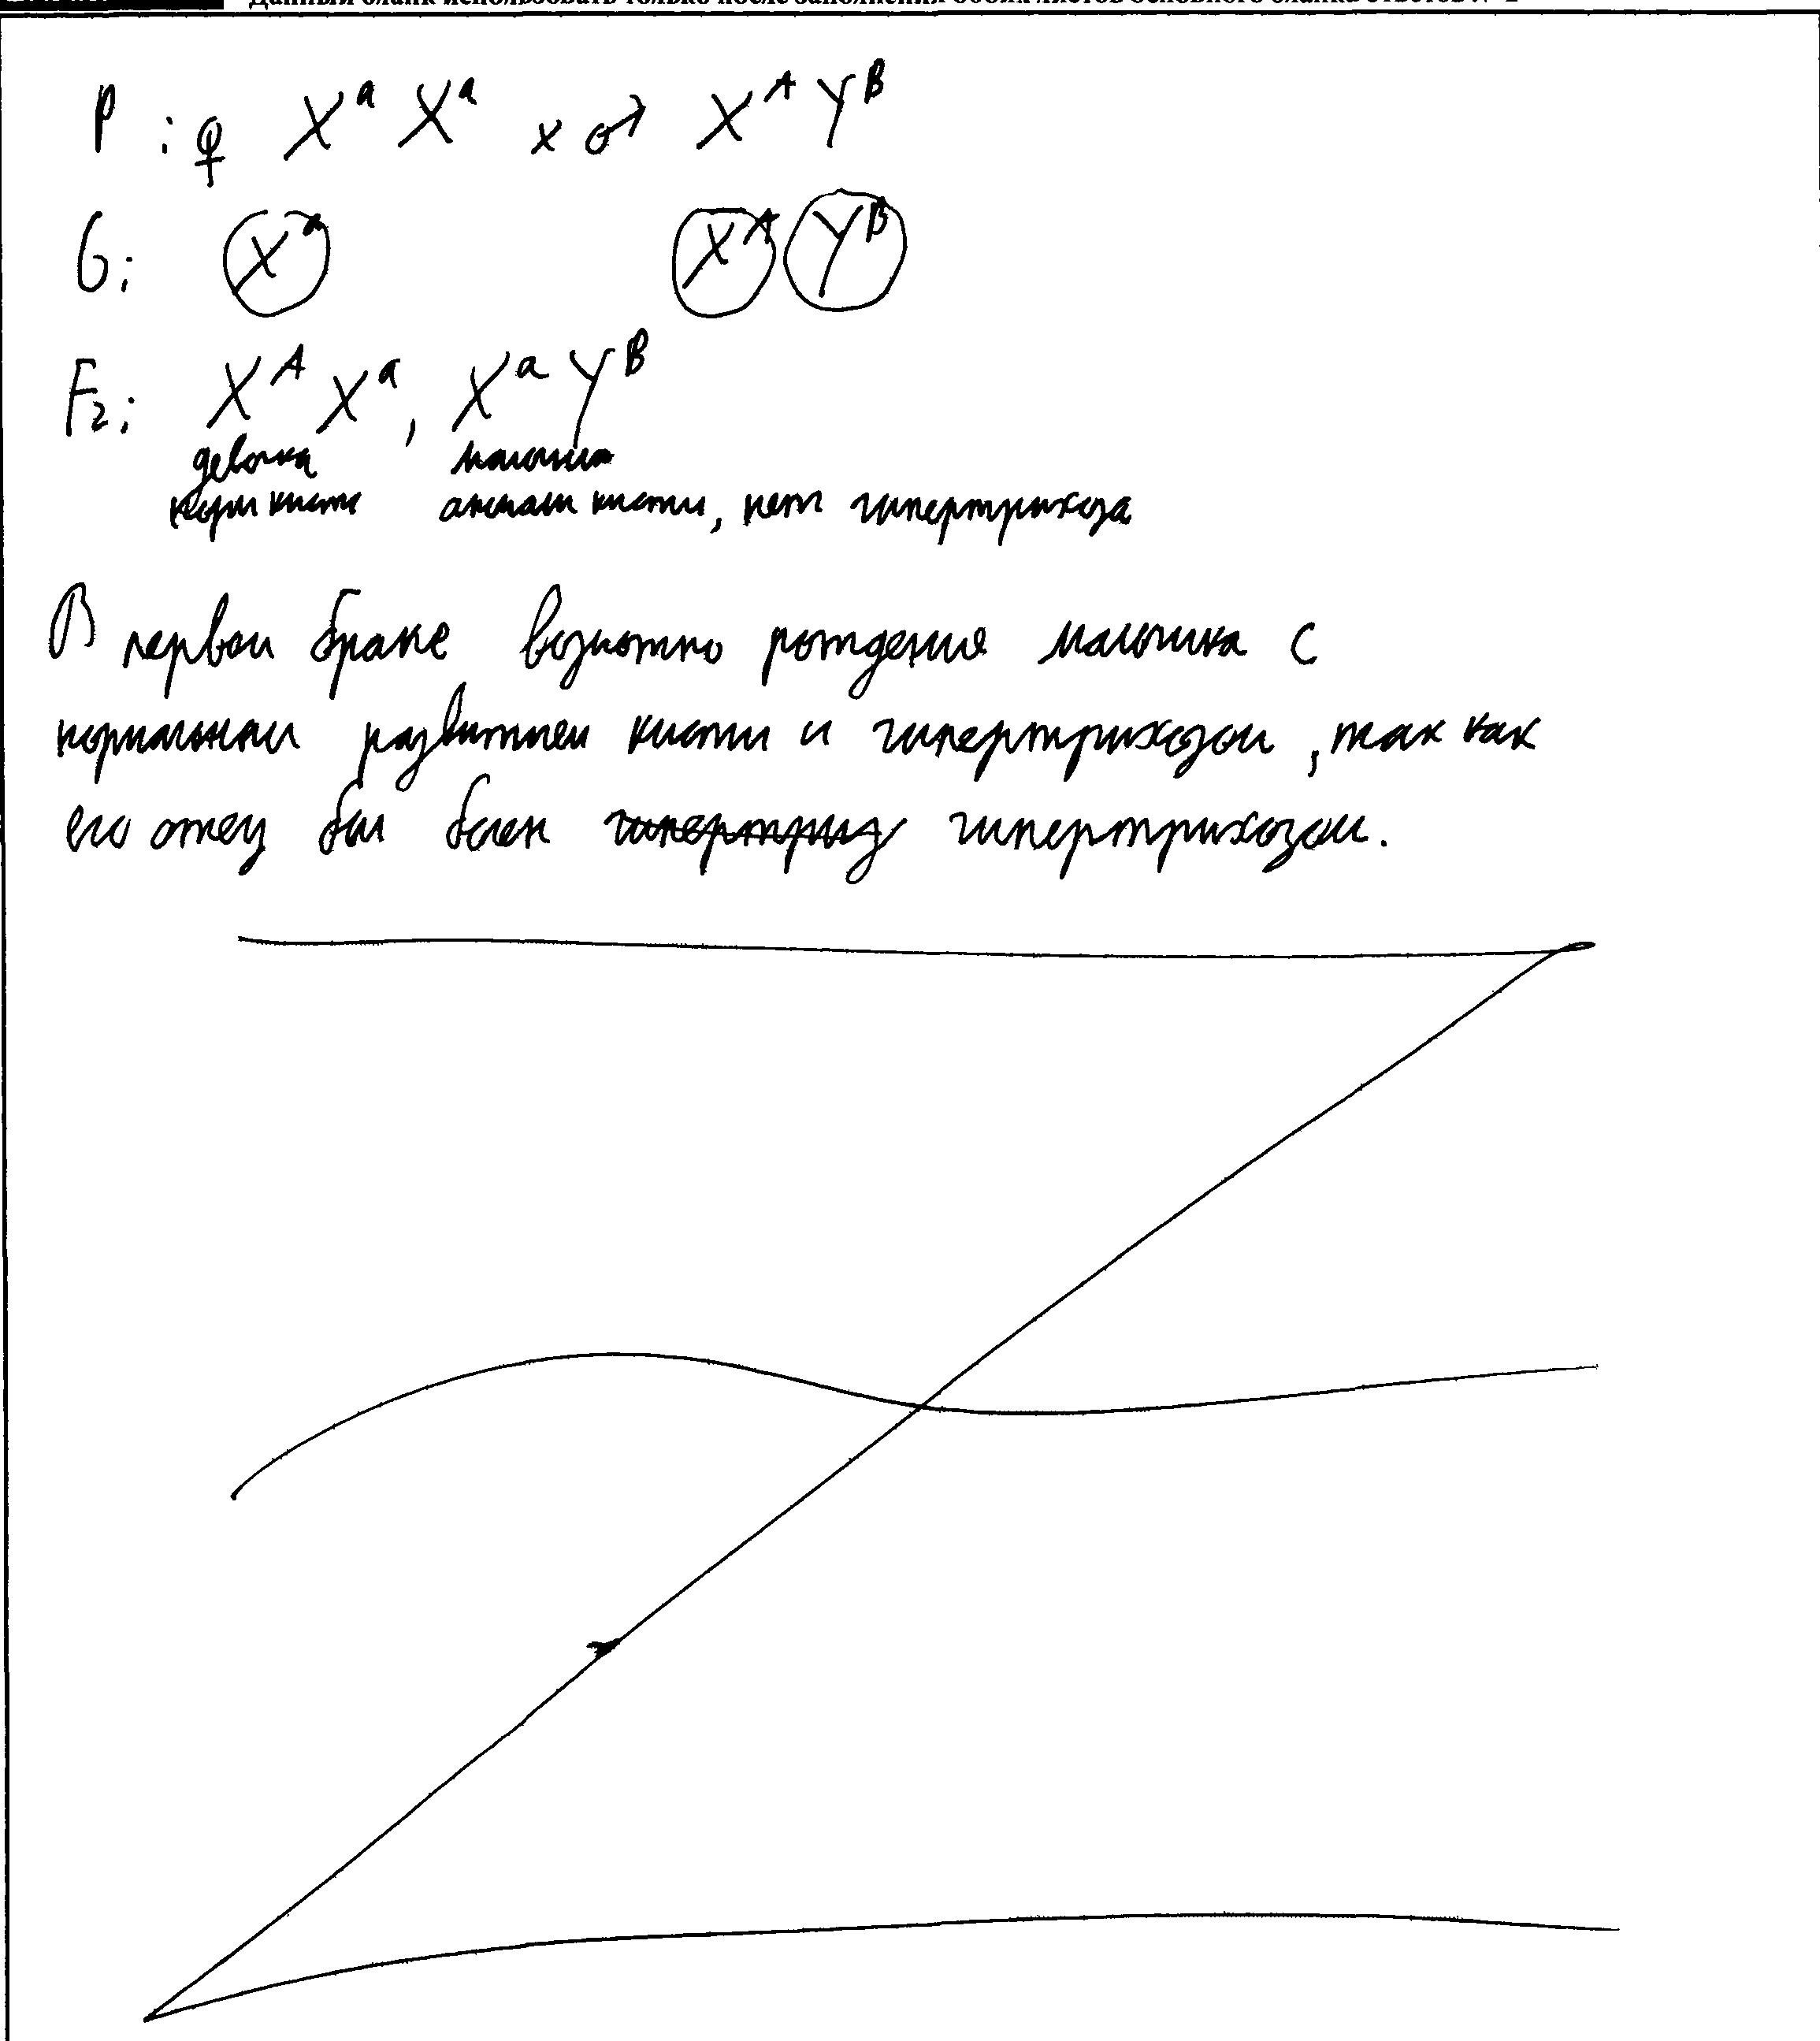 Данный бланк использовать только после заполнения обоих листов основного бланка ответов № 2
P : ♀ Xᵃ Xᵃ x ♂ Xᴬ Yᴮ
G: Xᵃ Xᴬ Yᴮ
F₂: Xᴬ Xᵃ, Xᵃ Yᴮ
девочка мальчик
норм кисть аномал кисти, нет гипертрихоза
В первом браке возможно рождения мальчика с
нормальным развитием кисти и гипертрихозом, так как
его отец был болен гипертрихозом.